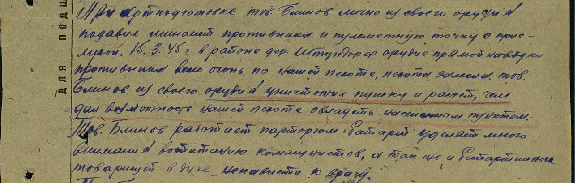 При артподготовке тов. Блинов лично из своего орудия
подавил миномет противника и пулеметную точку с прис-
лугой. 15.3.45 г. в районе дер. орудие прямой наводки
противника вело огонь по нашей пехоте, пехота залегла. тов.
Блинов из своего орудия уничтожил пушку и расчет, чем
дал возможность нашей пехоте овладеть населенным пунктом.
Тов. Блинов работает парторгом батареи уделяет много
внимания воспитанию коммунистов, а так же и беспартийных
товарищей в духе ненависти к врагу.
для подш